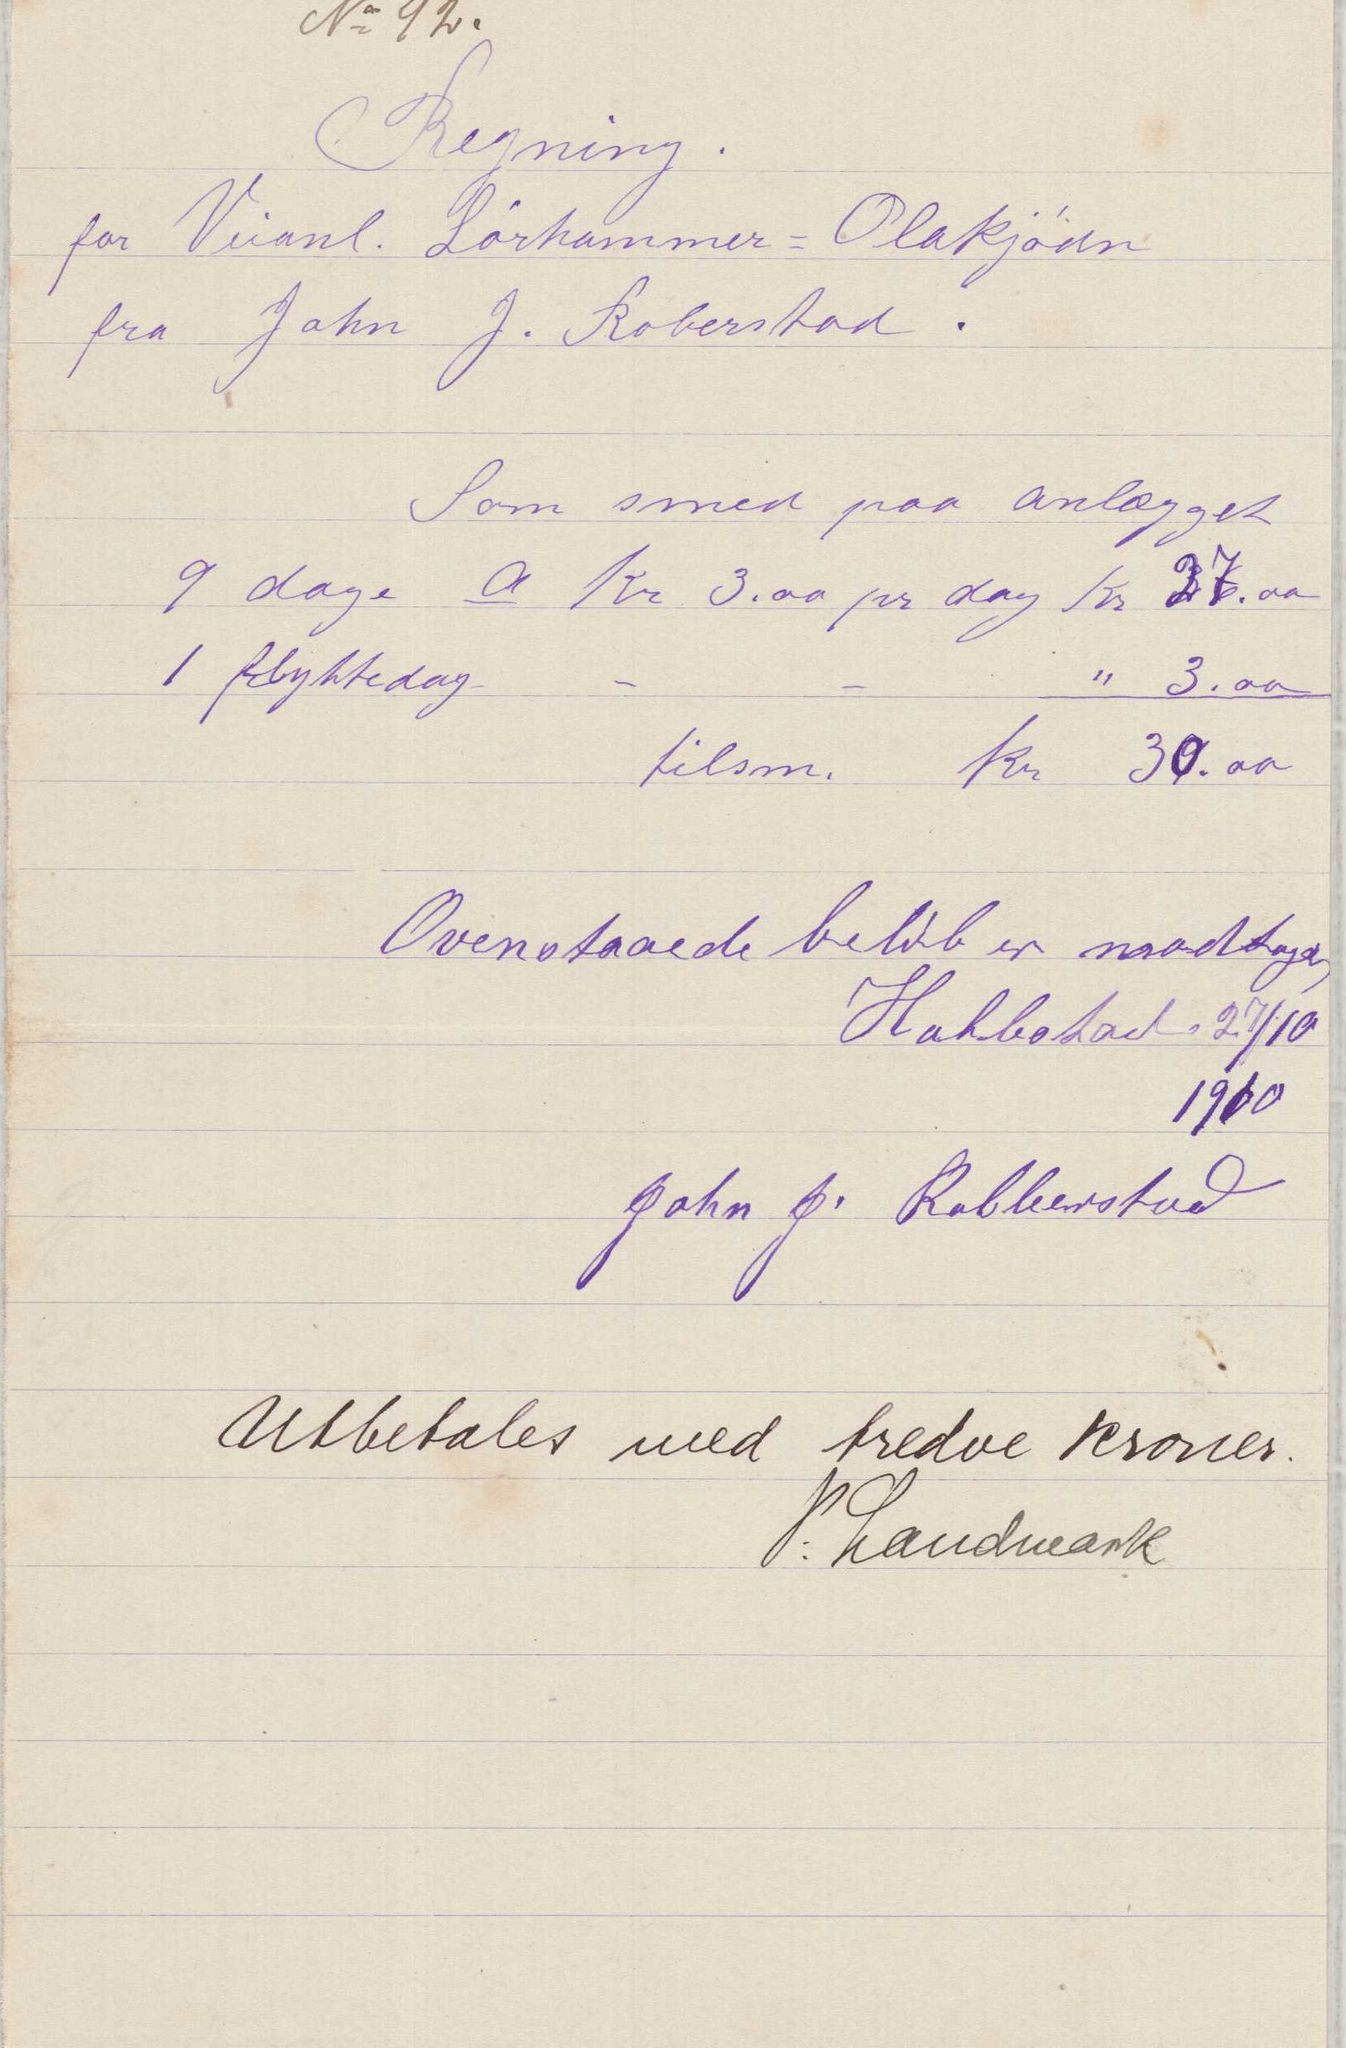 No 92.
Regning.
for Veianl. Lörhammer = Olakjödn
fra John J. Roberstad.
Som smed paa anlægget
9 dage a Kr 3.00 pr dag Kr 27.00
1 flyttedag - - " 3.00
tilsm. Kr 30.00
Ovenstaaede belöb er modtaget
27/10
1910
John J. Robberstad
Utbetales med tredve kroner.
P. Landmark